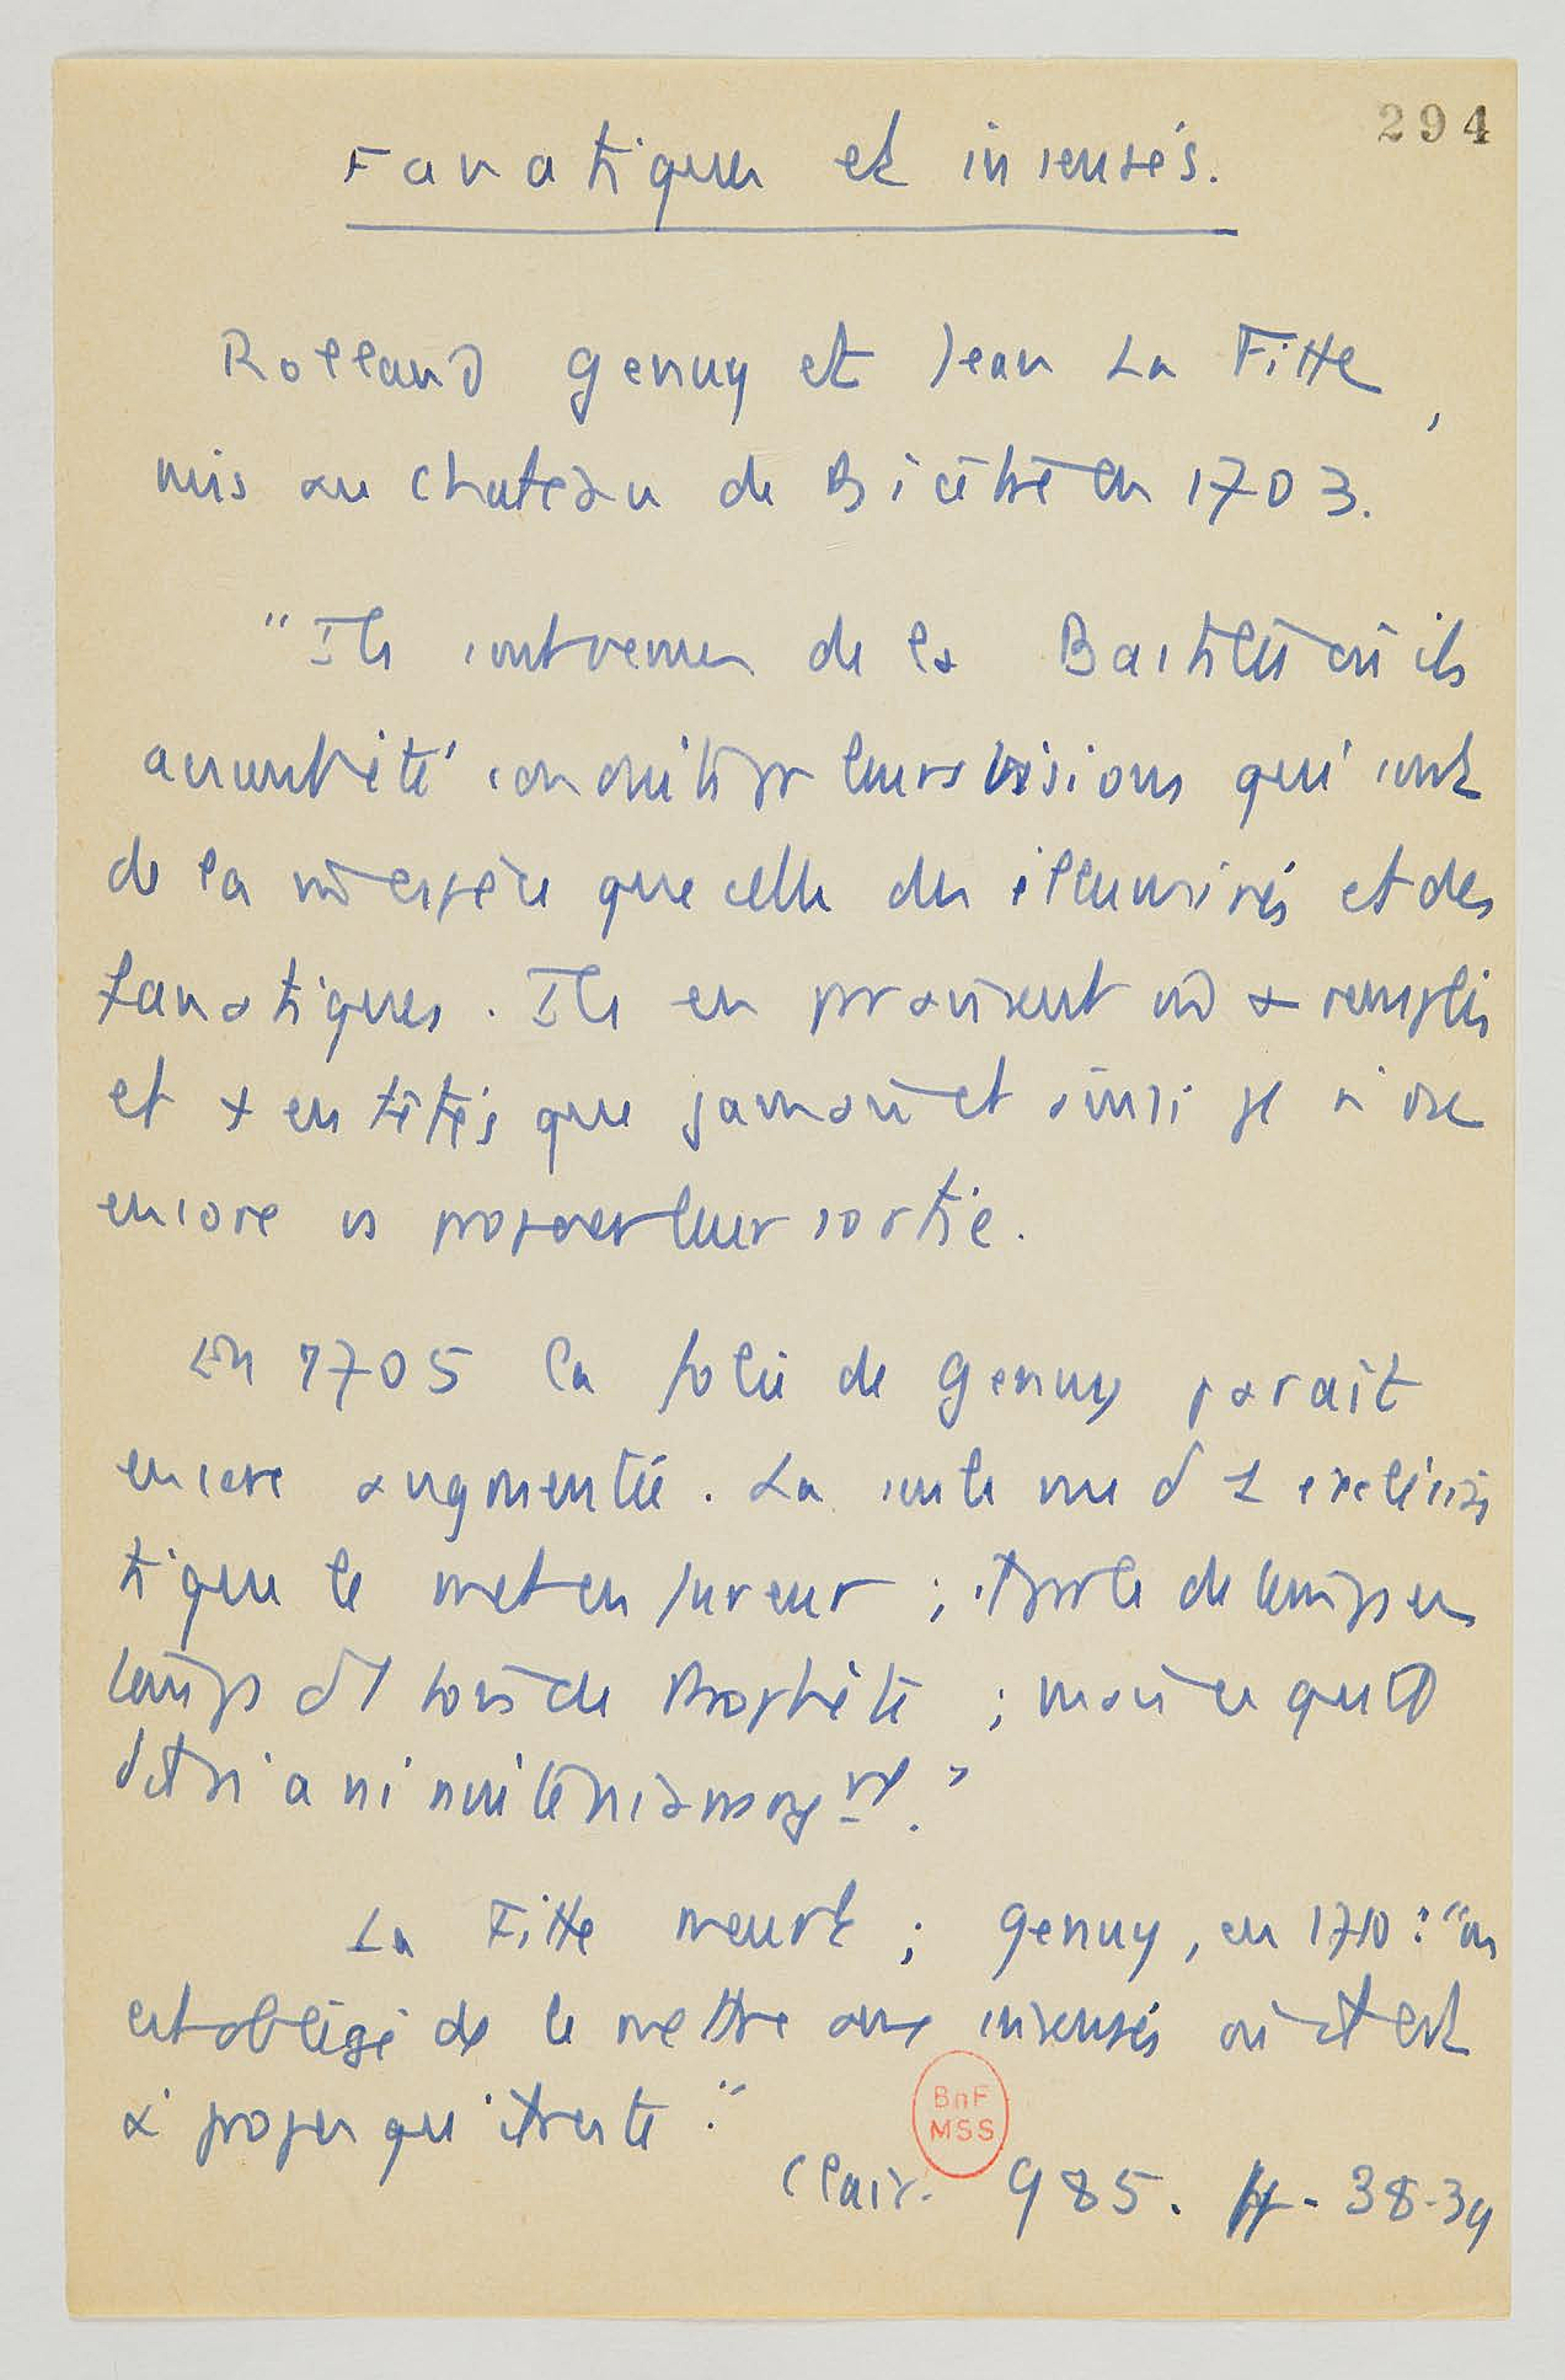 294
Fanatiques et insensés.
Rolland Genuy et Jean La Fitte,
mis au chateau de Bicêtre en 1703.
"Ils sont venus de la Bastille où ils
avaient été conduits pr leurs visions qui sont
de la m̂ espèce que celle des illuminés et des
fanatiques. Ils en paraissent m̂ + remplis
et + entêtés que jamais et ainsi je n'ose
encore vs proposer leur sortie.
En 1705 la folie de Genuy parait
encore augmentée. La seule vue d'1 ecclésias
tique le met en fureur ; il parle de temps en
temps d'1 ton de Prophète ; mais ce qu'il
dit n'a ni suite ni
La Fitte meurt ; Genuy, en 1710 : "on
est obligé de le mettre aux insensés où il est
à propos qu'il reste."
BnF
MSS
Clair. 985. ff. 38-39